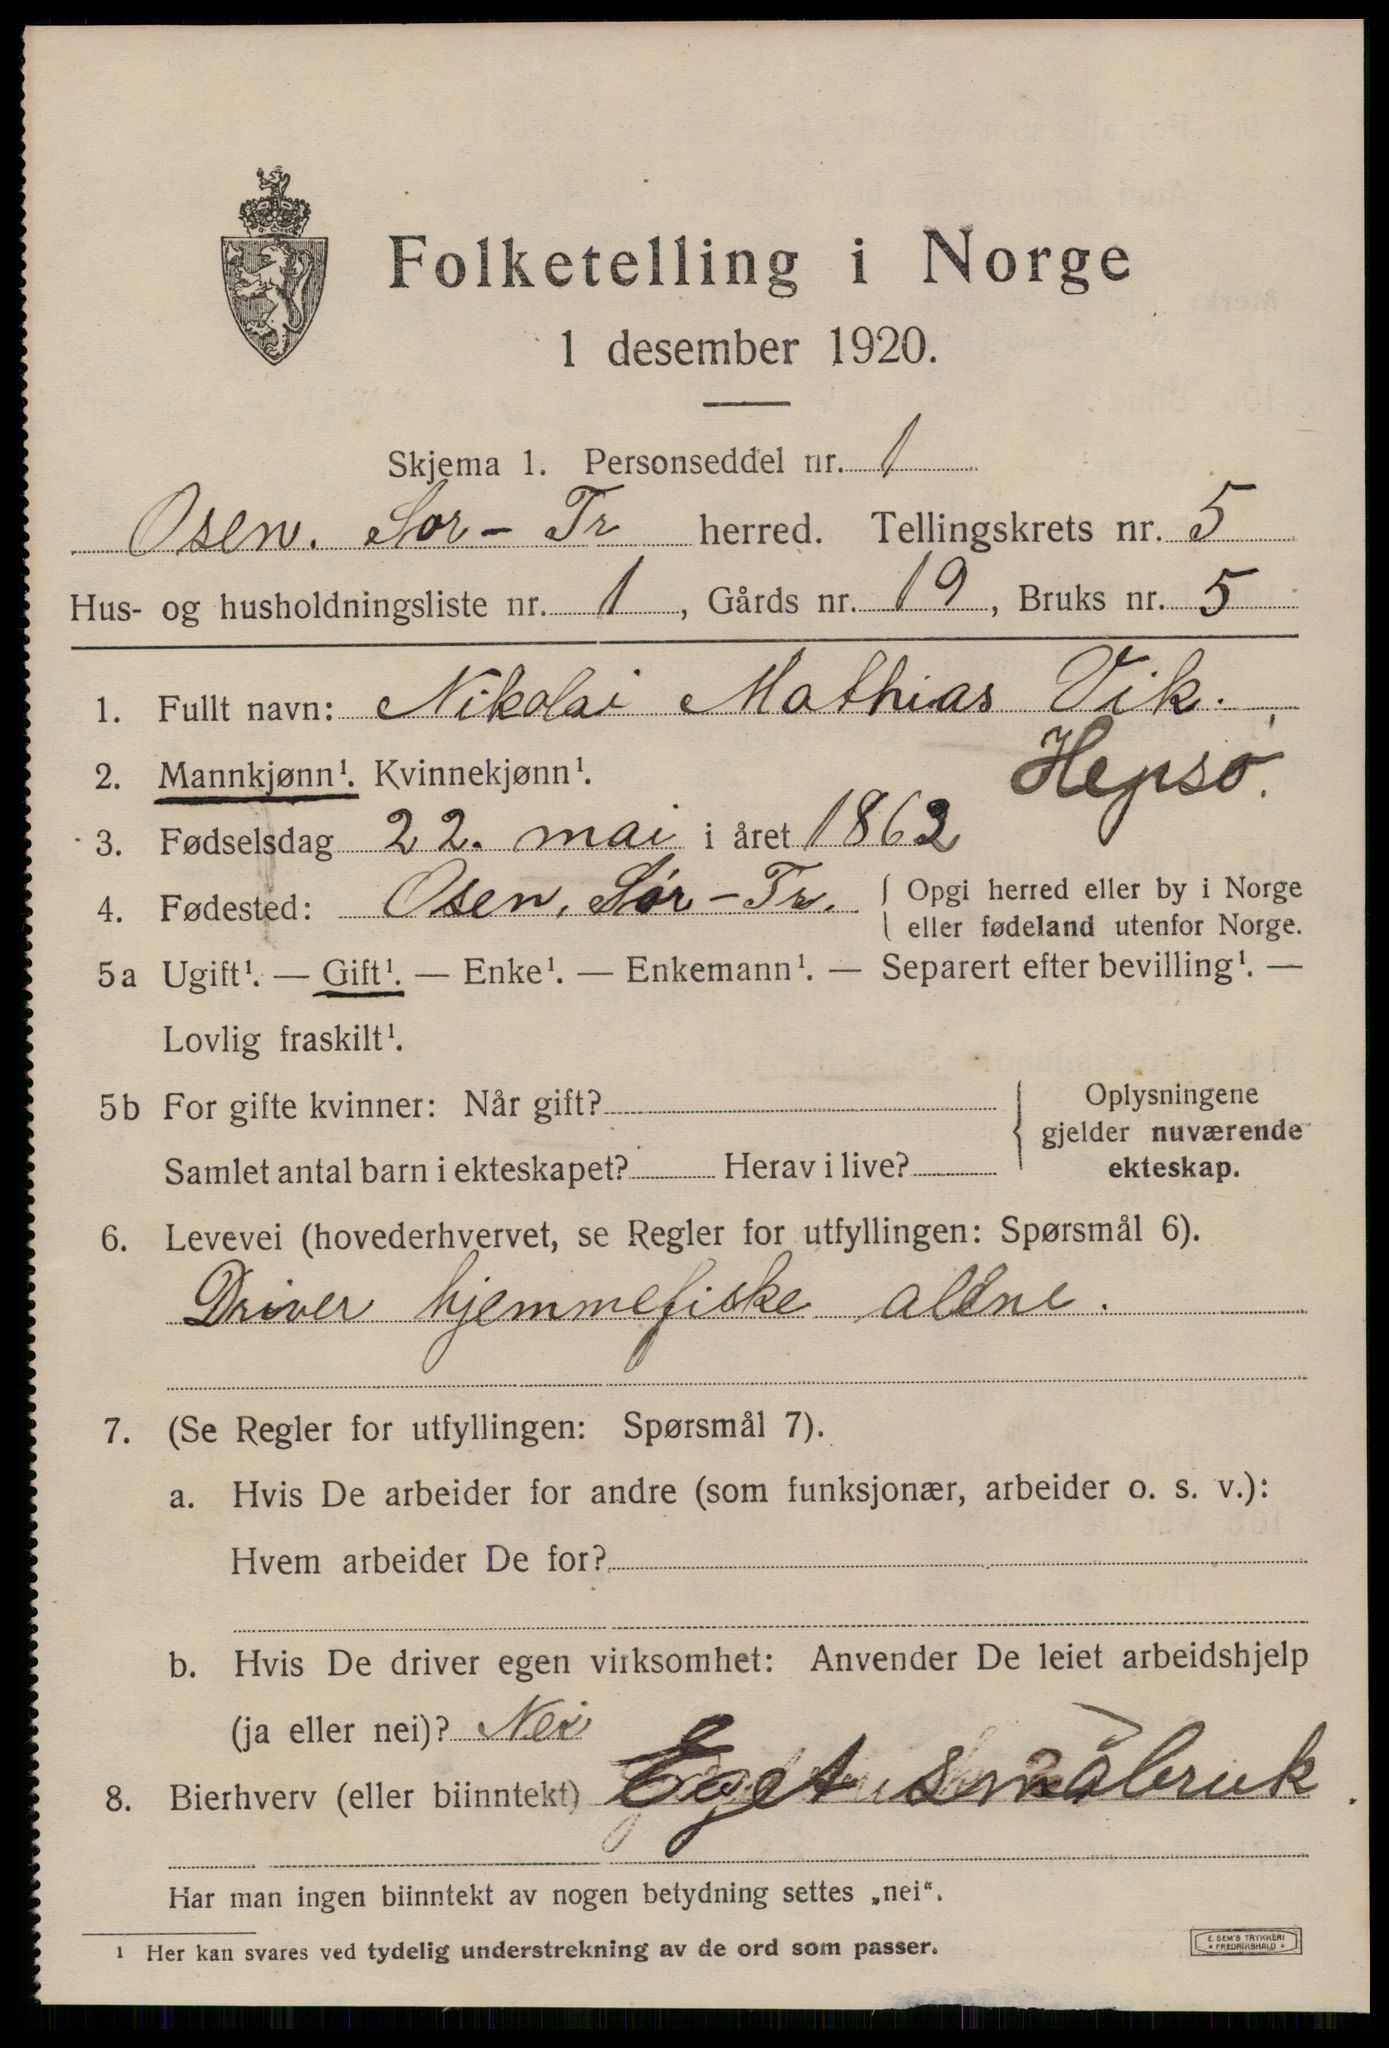 Folketelling i Norge
1 desember 1920.
Skjema 1. Personseddel nr. 1
Osen. Sor-Tr herred. Tellingskrets nr. 5
Hus- og husholdningsliste nr. 1, Gårds nr. 19, Bruks nr. 5
1. Fullt navn: Nikolai Mathias Vik.
Hepsø.
2. Mannkjønn¹. Kvinnekjønn¹.
3. Fødselsdag 22. mai i året 1862
4. Fødested: Osen, Sør-Tr. { Opgi herred eller by i Norge
eller fødeland utenfor Norge.
5a Ugift¹. — Gift¹. — Enke¹. — Enkemann¹. — Separert efter bevilling¹. —
Lovlig fraskilt¹.
5b For gifte kvinner: Når gift? { Oplysningene
gjelder nuværende
ekteskap.
Samlet antal barn i ekteskapet? Herav i live?
6. Levevei (hovederhvervet, se Regler for utfyllingen: Spørsmål 6).
Driver hjemmefiske alene.
7. (Se Regler for utfyllingen: Spørsmål 7).
a. Hvis De arbeider for andre (som funksjonær, arbeider o. s. v.):
Hvem arbeider De for?
b. Hvis De driver egen virksomhet: Anvender De leiet arbeidshjelp
(ja eller nei)? Nei
8. Bierhverv (eller biinntekt) Eget småbruk.
Har man ingen biinntekt av nogen betydning settes „nei".
¹ Her kan svares ved tydelig understrekning av de ord som passer.
E. SEM'S TRYKKERI
* FREDRIKSHALD *